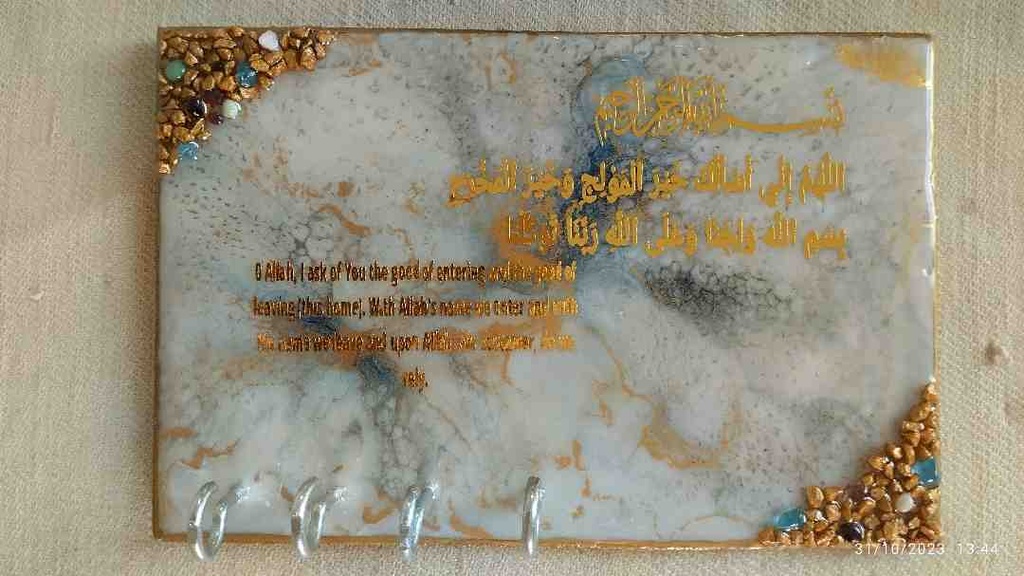 بسم الله الرحمن الرحيم
اللهم إني أسألك خير المولج وخير المخرج
بسم الله ولجنا وعلى الله ربنا توكلنا
O Allah, I ask of You the good of entering and the good of
leaving (this home). With Allah's name we enter and with
His name we leave and upon Allah
rely.
31/10/2023 13:44